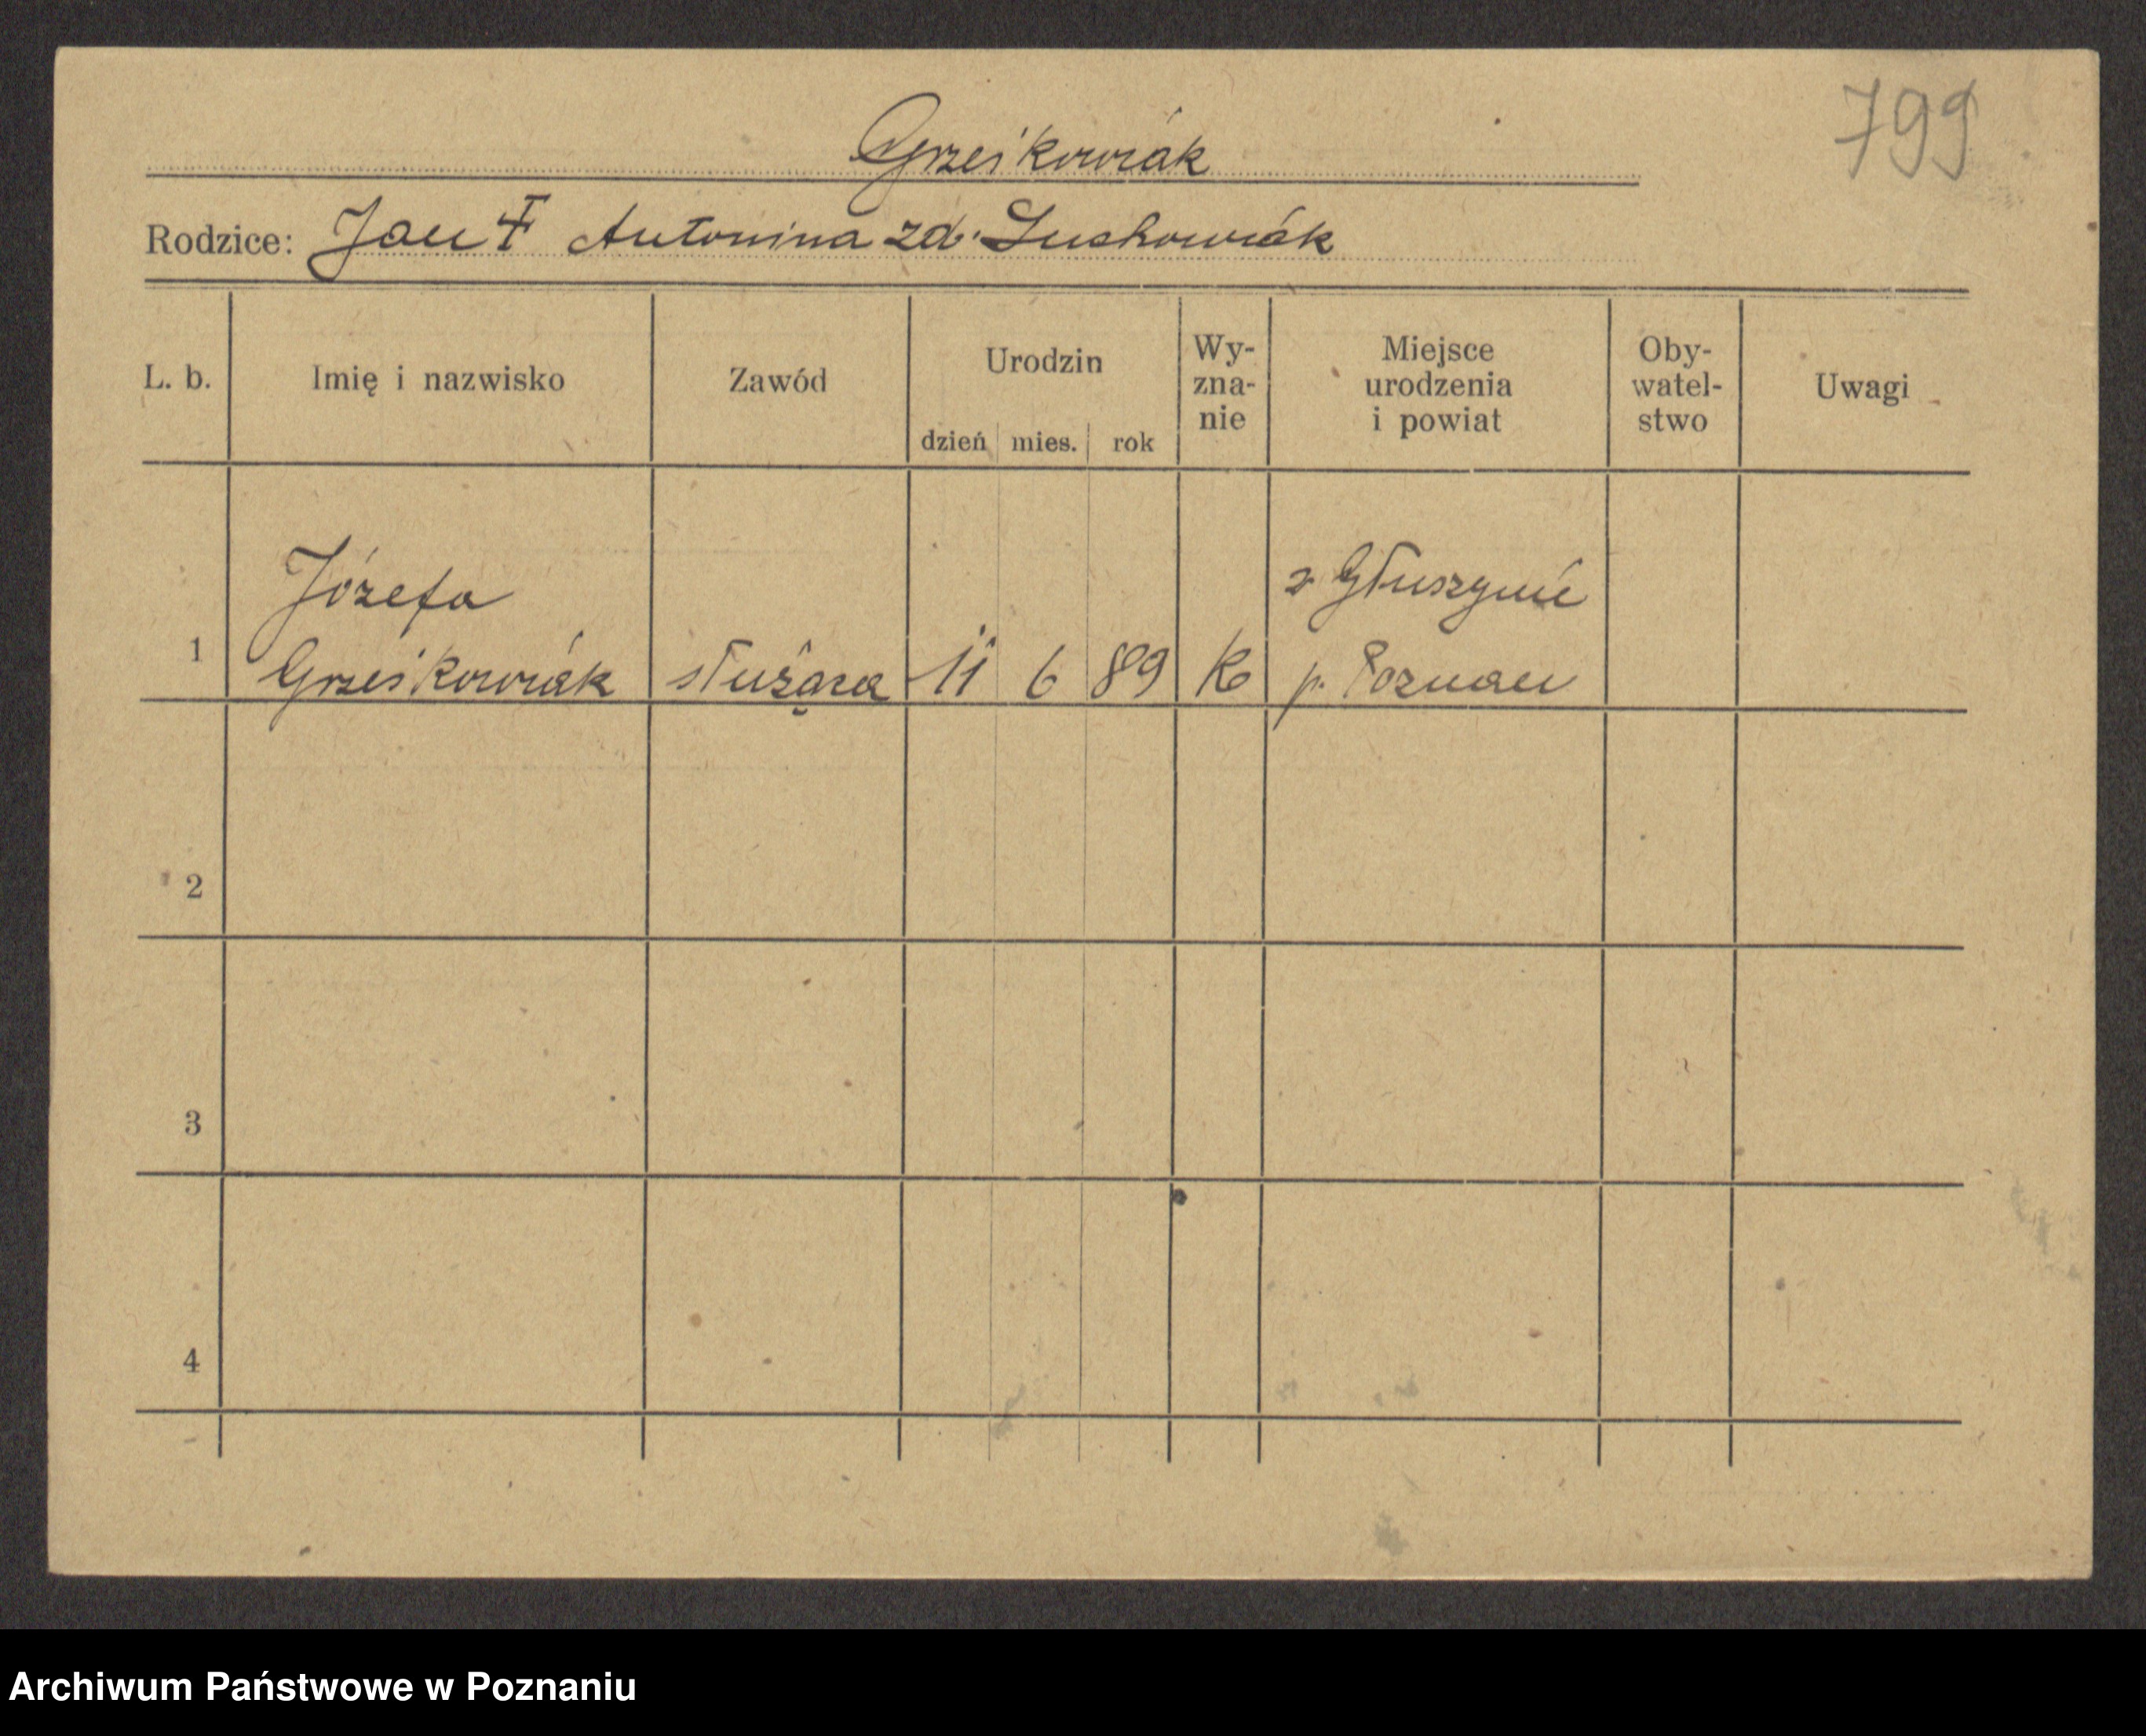 799
Grześkowiak
Rodzice: Jan † Antonina zd. Suchowiak
L. b.
Imię i nazwisko
Zawód
Urodzin
dzień mies. rok
Wy-
zna-
nie
Miejsce
urodzenia
i powiat
Oby-
watel-
stwo
Uwagi
Józefa z Głuszynie
1 Grześkowiak służąca 11 6 89 K p. Poznań
2
3
4
Archiwum Państwowe w Poznaniu